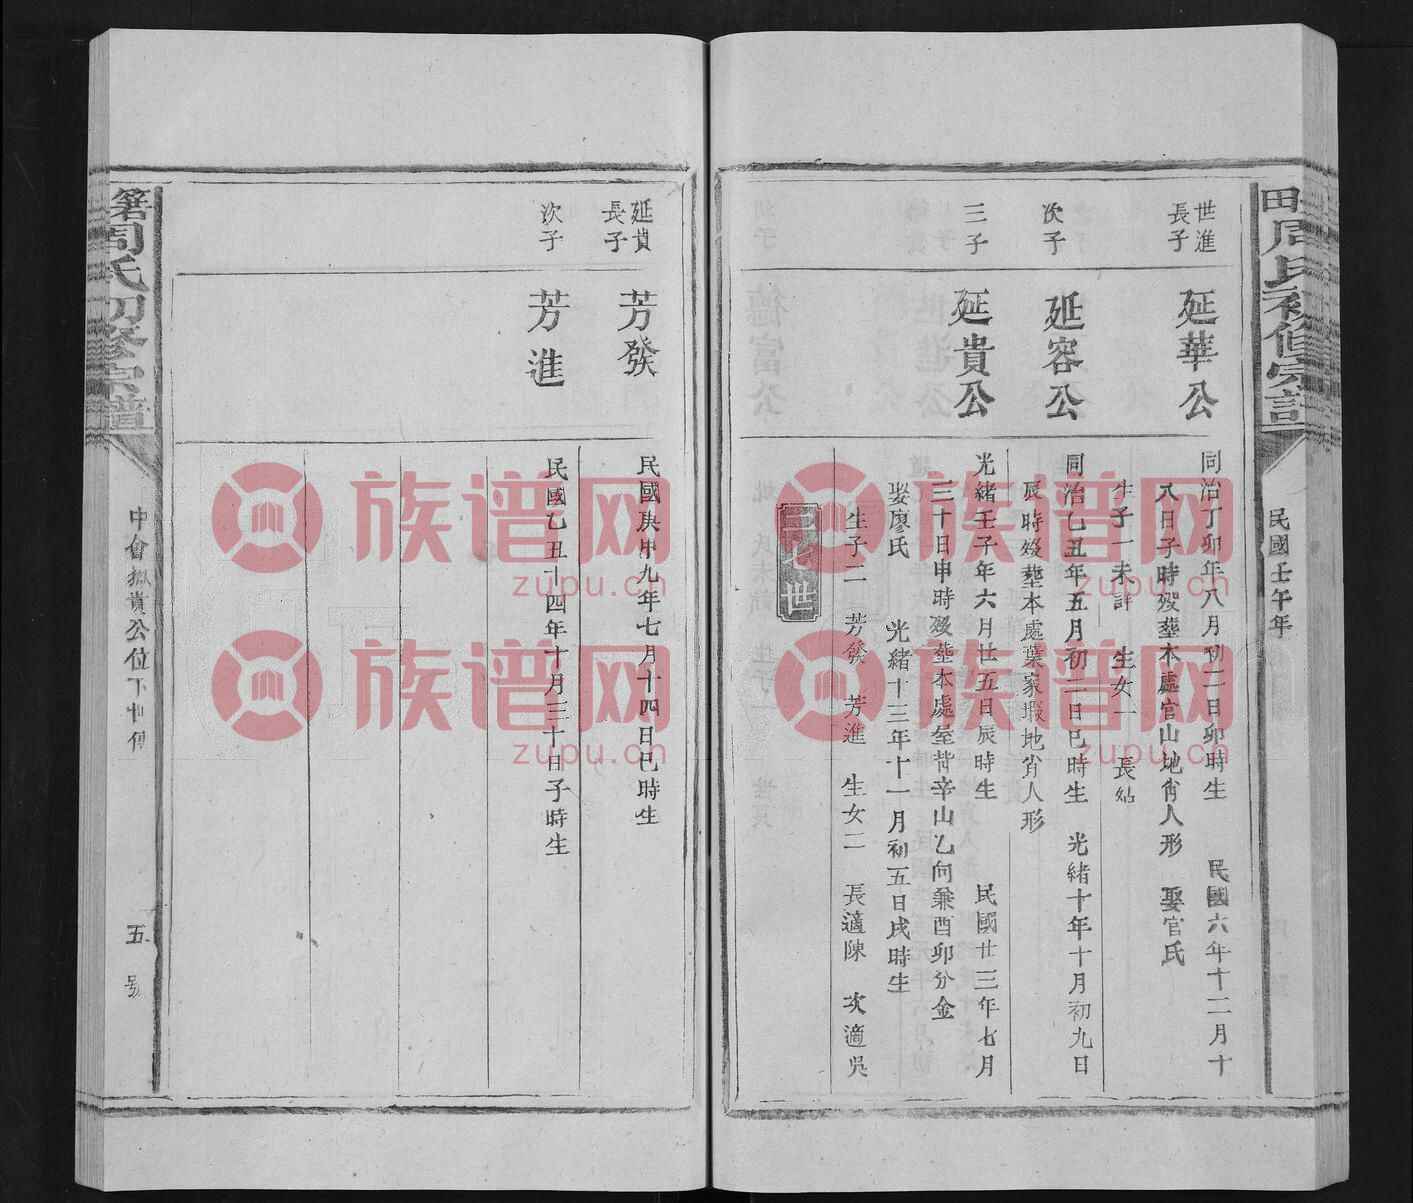 田周氏初修宗譜
民國壬午年
世進
長子
延華公
同治丁卯年八月初二日卯時生 民國六年十二月十
八日子時歿塟本處官山地肖人形 娶官氏
生子一未詳 生女一 長姑
次子
延容公
同治乙丑年五月初二日巳時生 光緒十年十月初九日
辰時歿塟本處葉家塅地肖人形
三子
延貴公
光緒壬子年六月廿五日辰時生 民國廿三年七月
三十日申時歿塟本處屋背辛山乙向兼酉卯分金
娶廖氏 光緒十三年十一月初五日戌時生
生子二 芳發 芳進 生女二 長適陳 次適吳
延貴
長子
芳發
民國庚申九年七月十四日巳時生
次子
芳進
民國乙丑十四年十月三十日子時生
周氏初修宗譜
貴公位下
五
號
族谱网
zupu.cn
族谱网
zupu.cn
族谱网
zupu.cn
族谱网
zupu.cn